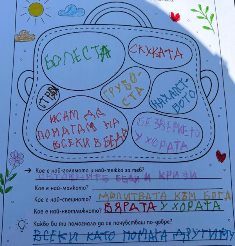 БОЛЕСТА
СКУКАТА
ГРУБО
СТА
СТРАХ
НАХАЛСТ
ВОТО
ИСАМ ДА
ПОМАГАМ НА
ВСЕКИ В БЕДА
БЕЗВЕРИЕТО
У ХОРАТА
Кое е най-голямото и най-тежко за теб?
Кое е най-малкото?
Кое е най-спешното? МОЛИТВАТА КЪМ БОГА
Кое е най-неотложното? ВЯРАТА У ХОРАТА
Какво би ти помогнало да се почувстваш по-добре?
ВСЕКИ КАТО ПОМАГА ДРУГИМУ